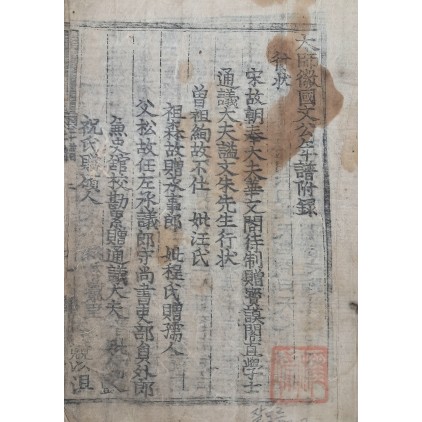 大師徽國文公年譜附錄
行狀
宋故朝奉大夫華文閣待制贈寶謨閣直學士
通議大夫謚文朱先生行狀
曾祖絢故不仕 妣汪氏
祖森故贈承事郎 妣程氏贈孺人
父松故任左承議郎守尚書吏部員外郎
兼史館校勘累贈通議大夫
祝氏